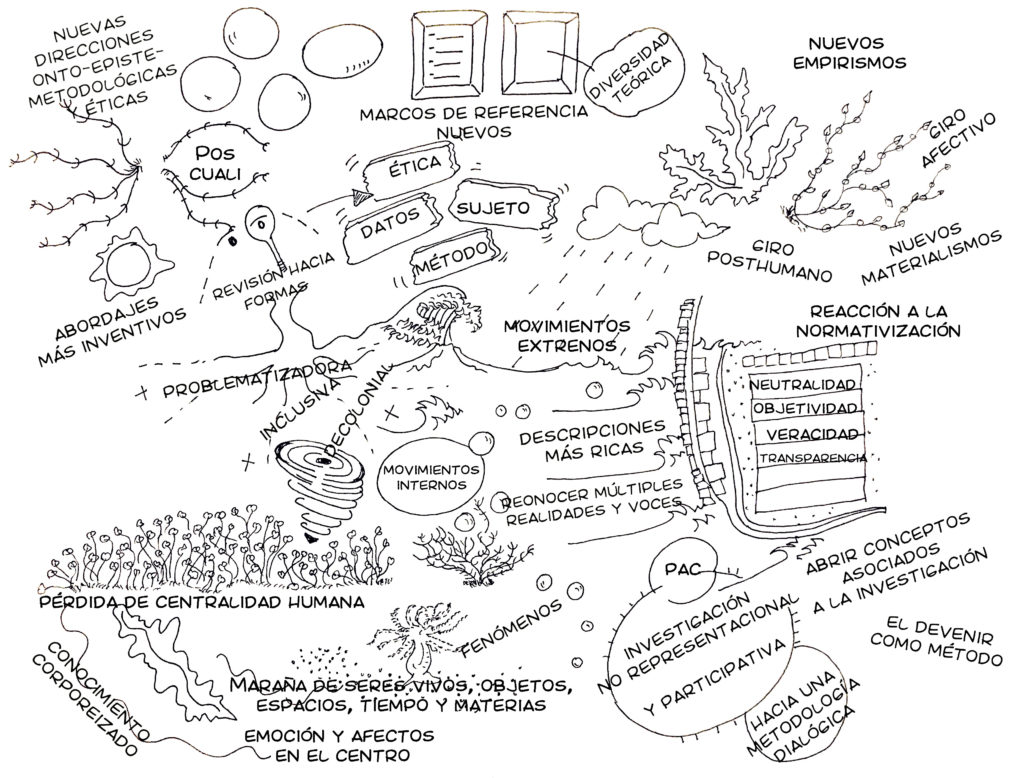 NUEVAS
DIRECCIONES
ONTO-EPISTE-
METODOLÓGICAS
ÉTICAS
POS
CUALI
MARCOS DE REFERENCIA
NUEVOS
DIVERSIDAD
TEÓRICA
NUEVOS
EMPIRISMOS
GIRO
AFECTIVO
NUEVOS
MATERIALISMOS
GIRO
POSTHUMANO
ÉTICA
DATOS
SUJETO
MÉTODO
ABORDAJES
MÁS INVENTIVOS
REVISIÓN HACIA
FORMAS
PROBLEMATIZADORA
INCLUSIVA
DECOLONIAL
MOVIMIENTOS
EXTRENOS
REACCIÓN A LA
NORMATIVIZACIÓN
NEUTRALIDAD
OBJETIVIDAD
VERACIDAD
TRANSPARENCIA
DESCRIPCIONES
MÁS RICAS
MOVIMIENTOS
INTERNOS
REONOCER MÚLTIPLES
REALIDADES Y VOCES
PÉRDIDA DE CENTRALIDAD HUMANA
CONOCIMIENTO
CORPOREIZADO
FENÓMENOS
MARAÑA DE SERES VIVOS, OBJETOS,
ESPACIOS, TIEMPO Y MATERIAS
EMOCIÓN Y AFECTOS
EN EL CENTRO
PAC
INVESTIGACIÓN
NO REPRESENTACIONAL
Y PARTICIPATIVA
HACIA UNA
METODOLOGÍA
DIALÓGICA
ABRIR CONCEPTOS
ASOCIADOS
A LA INVESTIGACIÓN
EL DEVENIR
COMO MÉTODO